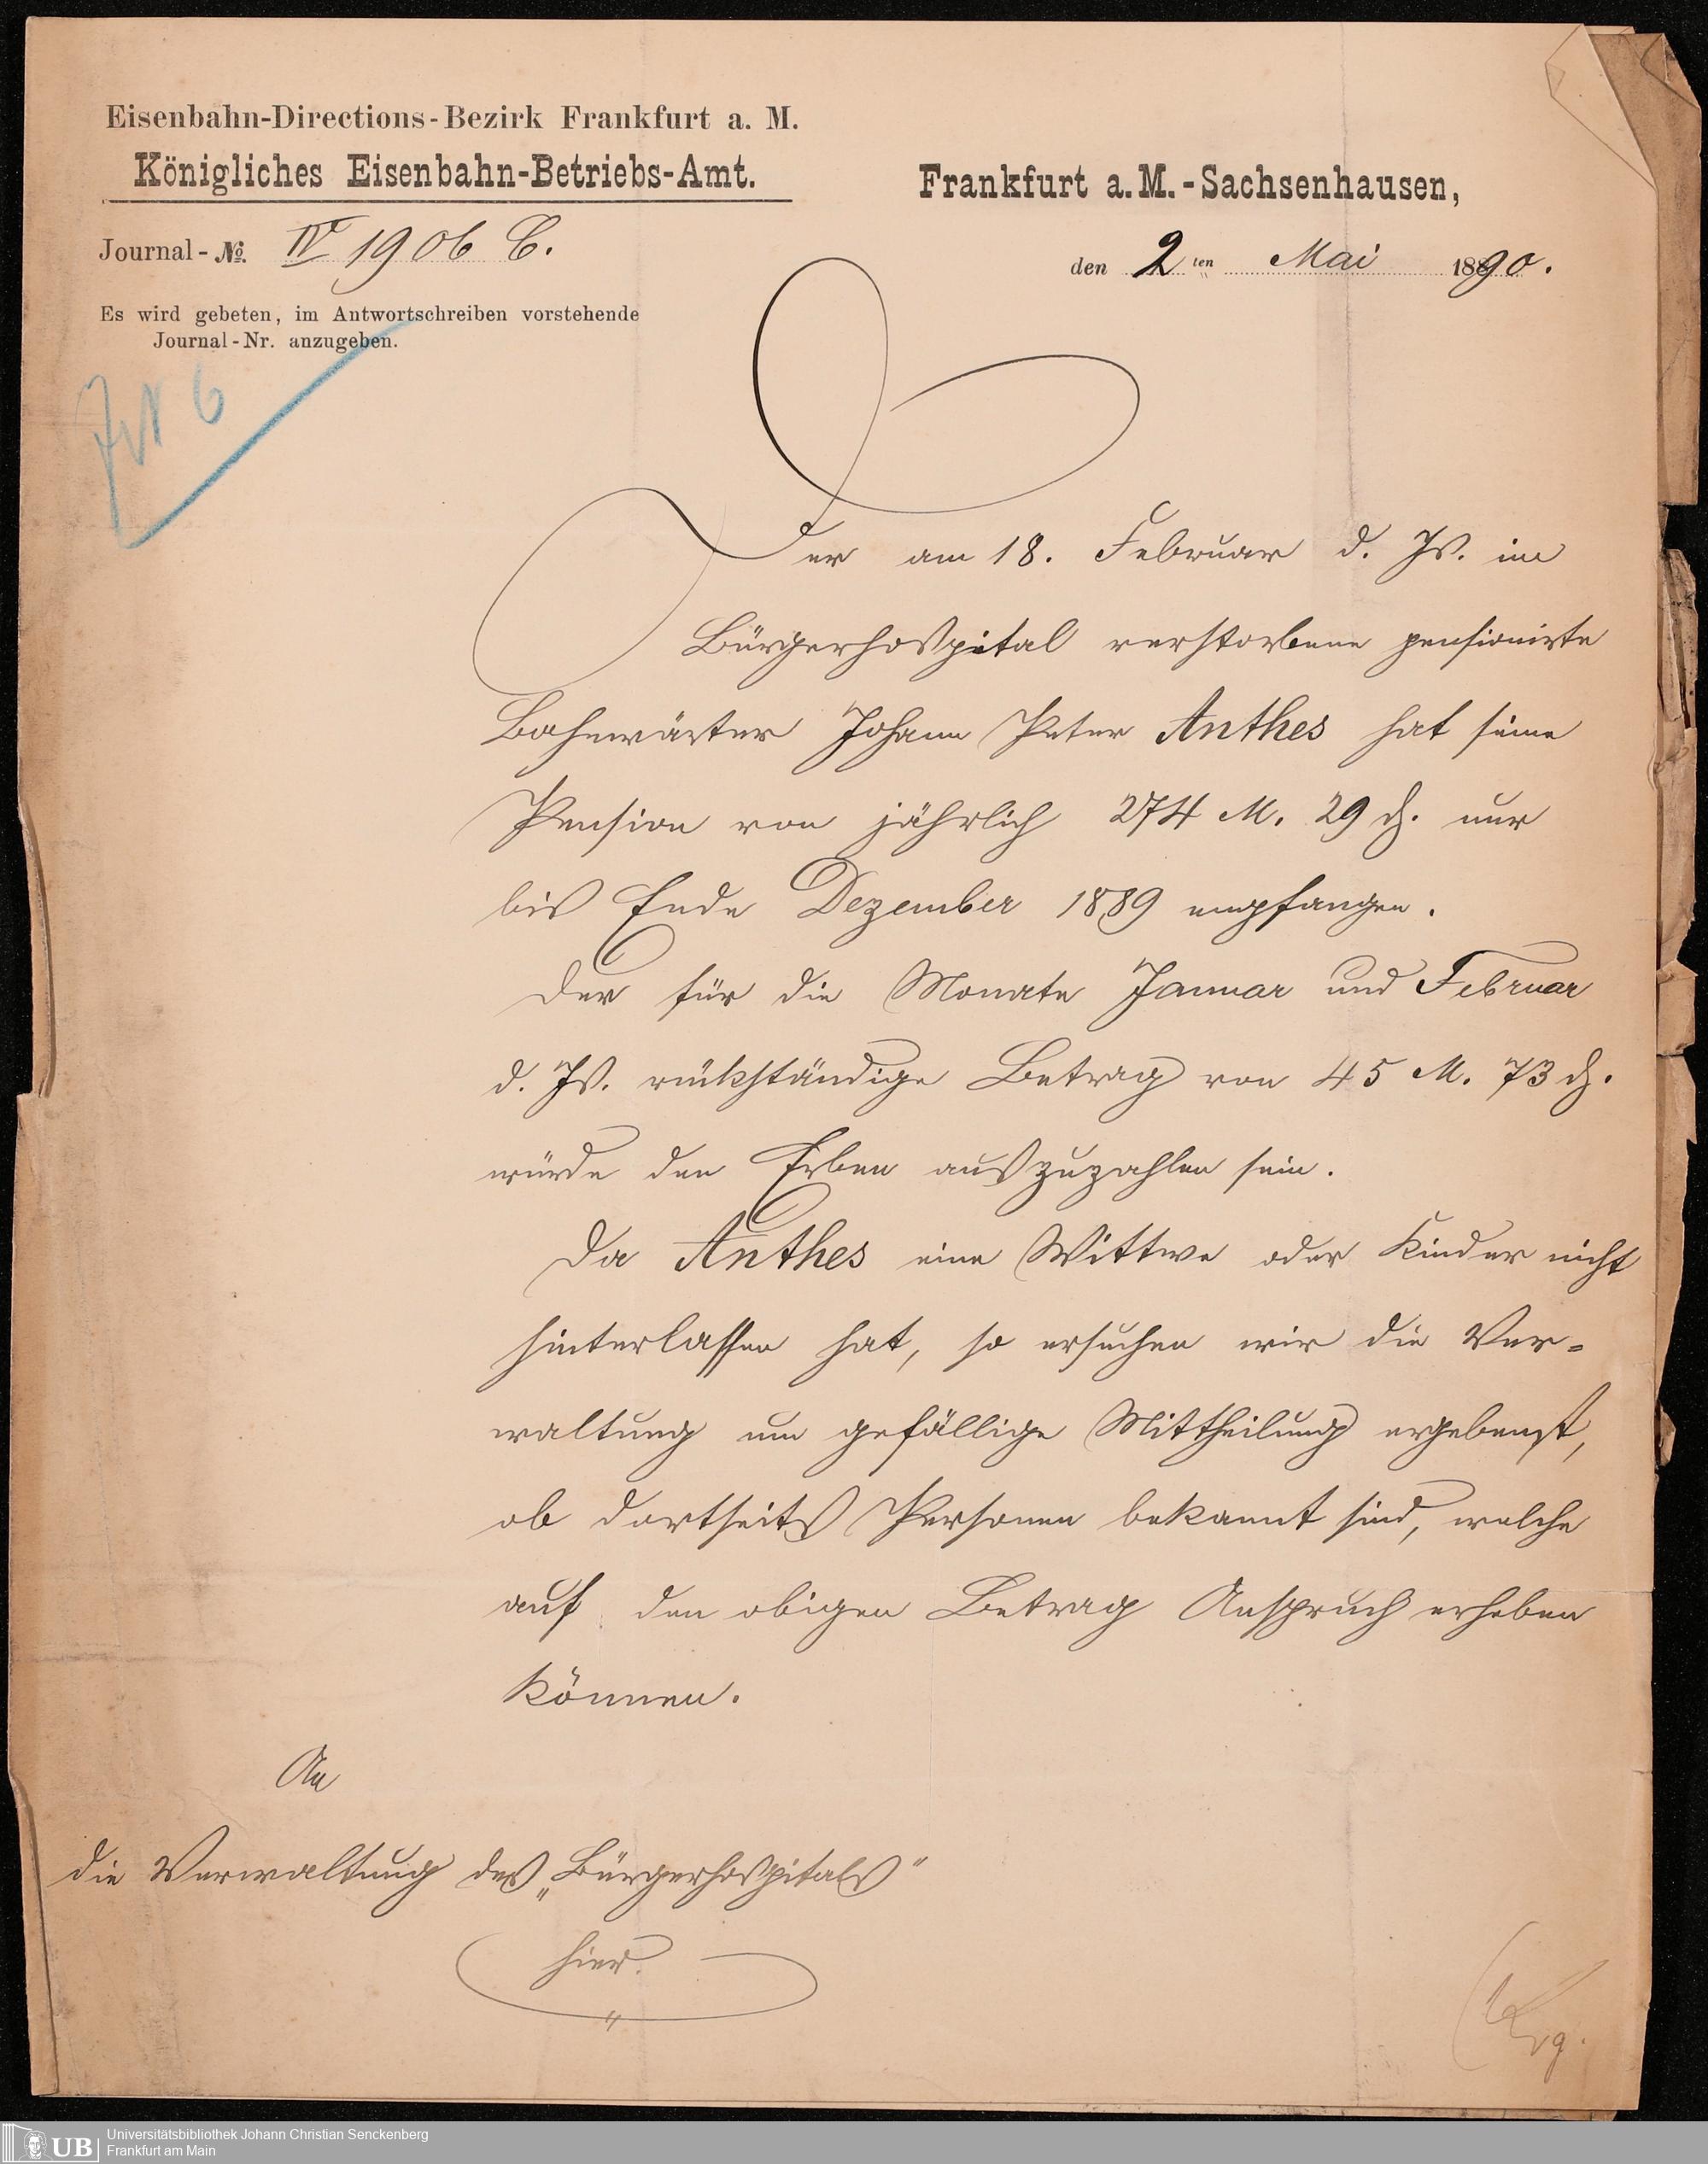 Eisenbahn-Directions-Bezirk Frankfurt a. M.
Königliches Eisenbahn-Betriebs-Amt.
Frankfurt a. M.-Sachsenhausen,
Journal-№. IV 1906 C.
den 2 ten Mai 1890.
Es wird gebeten, im Antwortschreiben vorstehende
Journal-Nr. anzugeben.
6
Der am 18. Februar d. Js. im
Bürgerhospital verstorbene pensionirte
Bahnwärter Johann Peter Anthes hat seine
Pension von jährlich 274 M. 29 ₰. nur
bis Ende Dezember 1889 empfangen.
Der für die Monate Januar und Februar
d. Js. rückständige Betrag von 45 M. 73 ₰.
würde den Erben auszuzahlen sein.
Da Anthes eine Wittwe oder Kinder nicht
hinterlassen hat, so ersuchen wir die Ver-
waltung um gefällige Mittheilung ergebenst,
ob dortseits Personen bekannt sind, welche
auf den obigen Betrag Anspruch erheben
können.
An
die Verwaltung des „Bürgerhospitals"
hier.
UB
Universitätsbibliothek Johann Christian Senckenberg
Frankfurt am Main